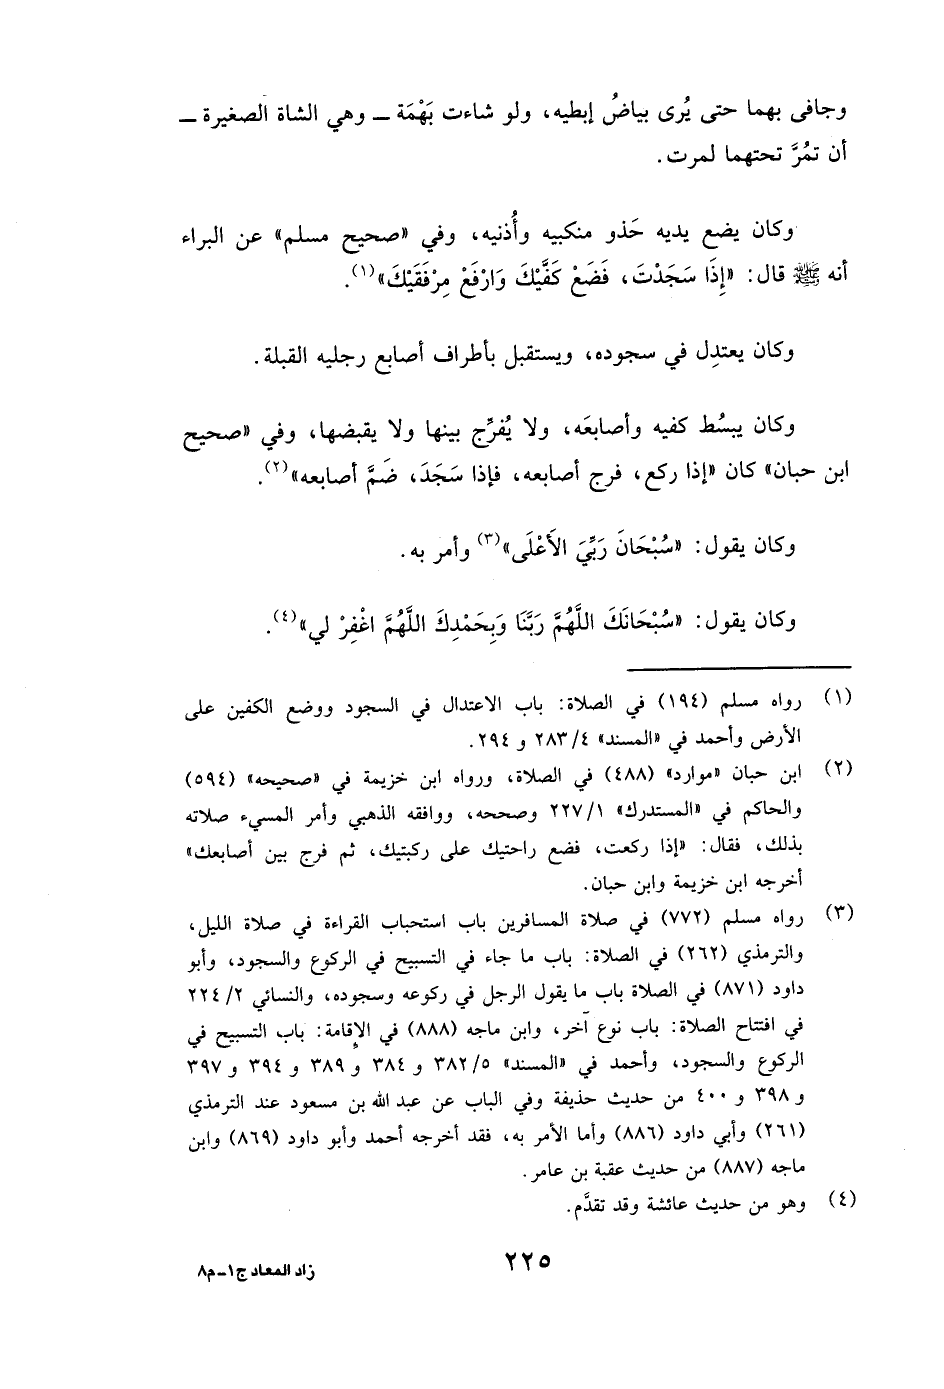 وجافى بهما حتى يُرى بياضُ إبطيه، ولو شاءت بَهْمَة ــ وهي الشاة الصغيرة ــ
أن تمُرَّ تحتهما لمرت.
وكان يضع يديه حَذو منكبيه وأُذنيه، وفي «صحيح مسلم» عن البراء
أنه ﷺ قال: «إِذَا سَجَدْتَ، فَضَعْ كَفَّيْكَ وَارْفَعْ مِرْفَقَيْكَ»(١).
وكان يعتدِل في سجوده، ويستقبل بأطراف أصابع رجليه القبلة.
وكان يبسُط كفيه وأصابعَه، ولا يُفرِّج بينها ولا يقبضها، وفي «صحيح
ابن حبان» كان «إذا ركع، فرج أصابعه، فإذا سَجَدَ، ضَمَّ أصابعه»(٢).
وكان يقول: «سُبْحَانَ رَبِّيَ الأَعْلَى»(٣) وأمر به.
وكان يقول: «سُبْحَانَكَ اللَّهُمَّ رَبَّنَا وَبِحَمْدِكَ اللَّهُمَّ اغْفِرْ لي»(٤).
(١) رواه مسلم (١٩٤) في الصلاة: باب الاعتدال في السجود ووضع الكفين على
الأرض وأحمد في «المسند» ٢٨٣/٤ و ٢٩٤.
(٢) ابن حبان «موارد» (٤٨٨) في الصلاة، ورواه ابن خزيمة في «صحيحه» (٥٩٤)
والحاكم في «المستدرك» ٢٢٧/١ وصححه، ووافقه الذهبي وأمر المسيء صلاته
بذلك، فقال: «إذا ركعت، فضع راحتيك على ركبتيك، ثم فرج بين أصابعك»
أخرجه ابن خزيمة وابن حبان.
(٣) رواه مسلم (٧٧٢) في صلاة المسافرين باب استحباب القراءة في صلاة الليل،
والترمذي (٢٦٢) في الصلاة: باب ما جاء في التسبيح في الركوع والسجود، وأبو
داود (٨٧١) في الصلاة باب ما يقول الرجل في ركوعه وسجوده، والنسائي ٢٢٤/٢
في افتتاح الصلاة: باب نوع آخر، وابن ماجه (٨٨٨) في الإِقامة: باب التسبيح في
الركوع والسجود، وأحمد في «المسند» ٣٨٢/٥ و ٣٨٤ و ٣٨٩ و ٣٩٤ و ٣٩٧
و ٣٩٨ و ٤٠٠ من حديث حذيفة وفي الباب عن عبد الله بن مسعود عند الترمذي
(٢٦١) وأبي داود (٨٨٦) وأما الأمر به، فقد أخرجه أحمد وأبو داود (٨٦٩) وابن
ماجه (٨٨٧) من حديث عقبة بن عامر.
(٤) وهو من حديث عائشة وقد تقدَّم.
٢٢٥
زاد المعاد ج١-م٨